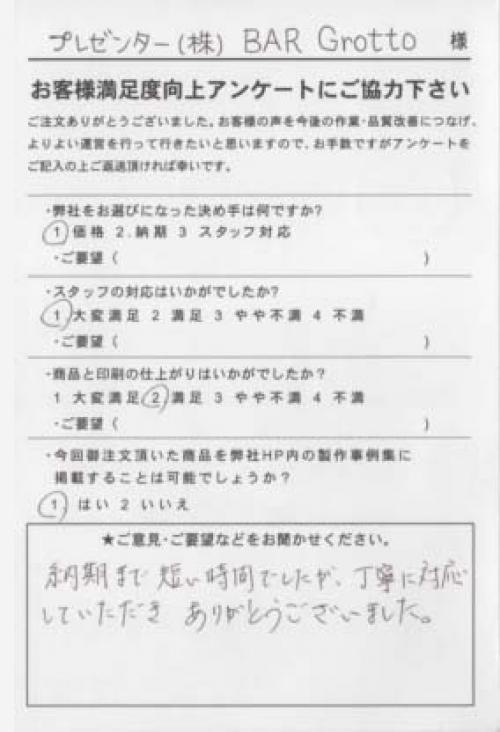 プレゼンター(株) BAR Grotto 様
お客様満足度向上アンケートにご協力下さい
ご注文ありがとうございました。お客様の声を今後の作業・品質改善につなげ、
よりよい運営を行って行きたいと思いますので、お手数ですがアンケートを
ご記入の上ご返送頂ければ幸いです。
・弊社をお選びになった決め手は何ですか?
1 価格 2.納期 3 スタッフ対応
・ご要望 ( )
・スタッフの対応はいかがでしたか?
1 大変満足 2 満足 3 やや不満 4 不満
・ご要望 ( )
・商品と印刷の仕上がりはいかがでしたか?
1 大変満足 2 満足 3 やや不満 4 不満
・ご要望 ( )
・今回御注文頂いた商品を弊社HP内の製作事例集に
掲載することは可能でしょうか?
1 はい 2 いいえ
★ご意見・ご要望などをお聞かせください。
納期まで短い時間でしたが、丁寧に対応
していただきありがとうございました。